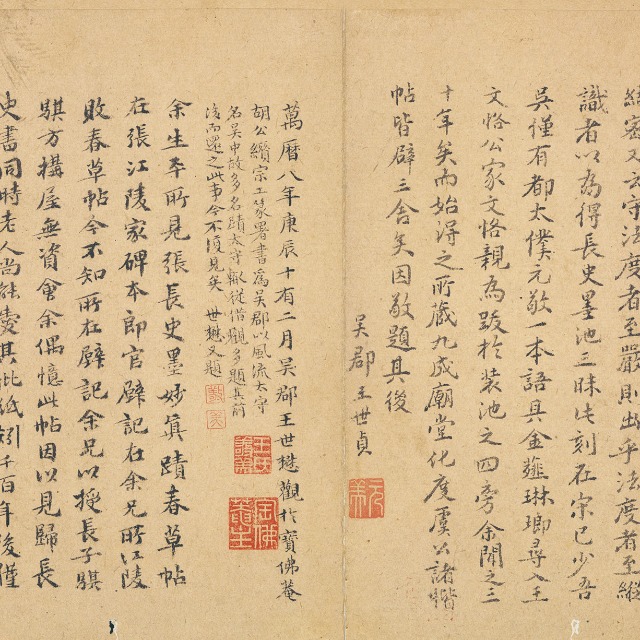 縝密又云守法度者至嚴則出乎法度者至縱
識者以為得長史墨池三昧此刻在宋已少吾
吳僅有都太僕元敬一本語具金薤琳琅尋入王
文恪公家文恪親為跋於裝池之四旁余聞之三
十年矣而始得之所藏九成廟堂化度虞公諸楷
帖皆辟三舍矣因敬題其後
吳郡王世貞
萬曆八年庚辰十有二月吳郡王世懋觀於寶佛菴
胡公纘宗工篆署書為吳郡以風流太守
名吳中故多名蹟太守輒從借觀多題其前
後而還之此事今不復見矣 世懋又題
余生平所見張長史墨妙真蹟春草帖
在張江陵家碑本郎官壁記在余兄所江陵
敗春草帖今不知所在壁記余兄以授長子騏
騏方構屋無資會余偶憶此帖因以見歸長
史書同時老人尚能賣其批紙刻千百年後僅